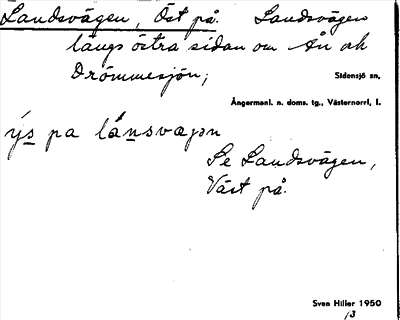 Landsvägen, Öst på. Landsvägen
längs östra sidan om Ån och
Drömmesjön;
Sidensjö sn,
Ångermanl. n. doms. tg., Västernorrl. l.
ýs pa lánsvaɡən
Se Landsvägen,
Väst på.
Sven Hiller 1950
13